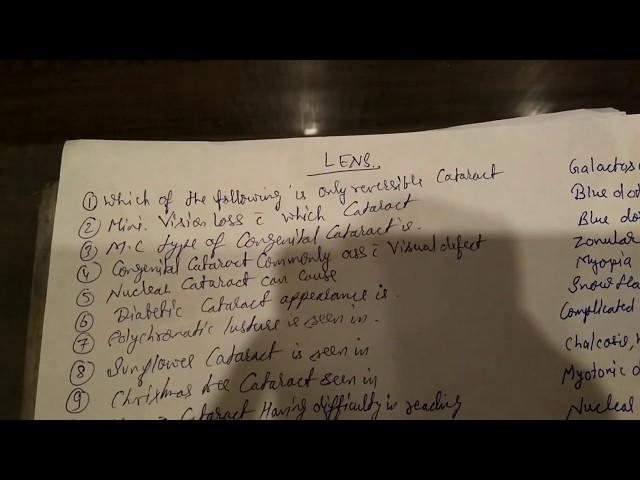 LENS.
① Which of the following is only reversible Cataract Galactos
② Mini. Vision loss c̄ which Cataract Blue dot
③ M.C type of Congenital Cataract is. Blue do
④ Congenital Cataract Commonly ass c̄ Visual defect Zonular
⑤ Nuclear Cataract can cause Myopia
⑥ Diabetic Cataract appearance is. Snowfla
⑦ Polychromatic lusture is seen in. Complicated
⑧ Sunflower Cataract is seen in Chalcosis,
⑨ Christmas tree Cataract seen in Myotonic d
Cataract Having difficulty in reading Nuclear